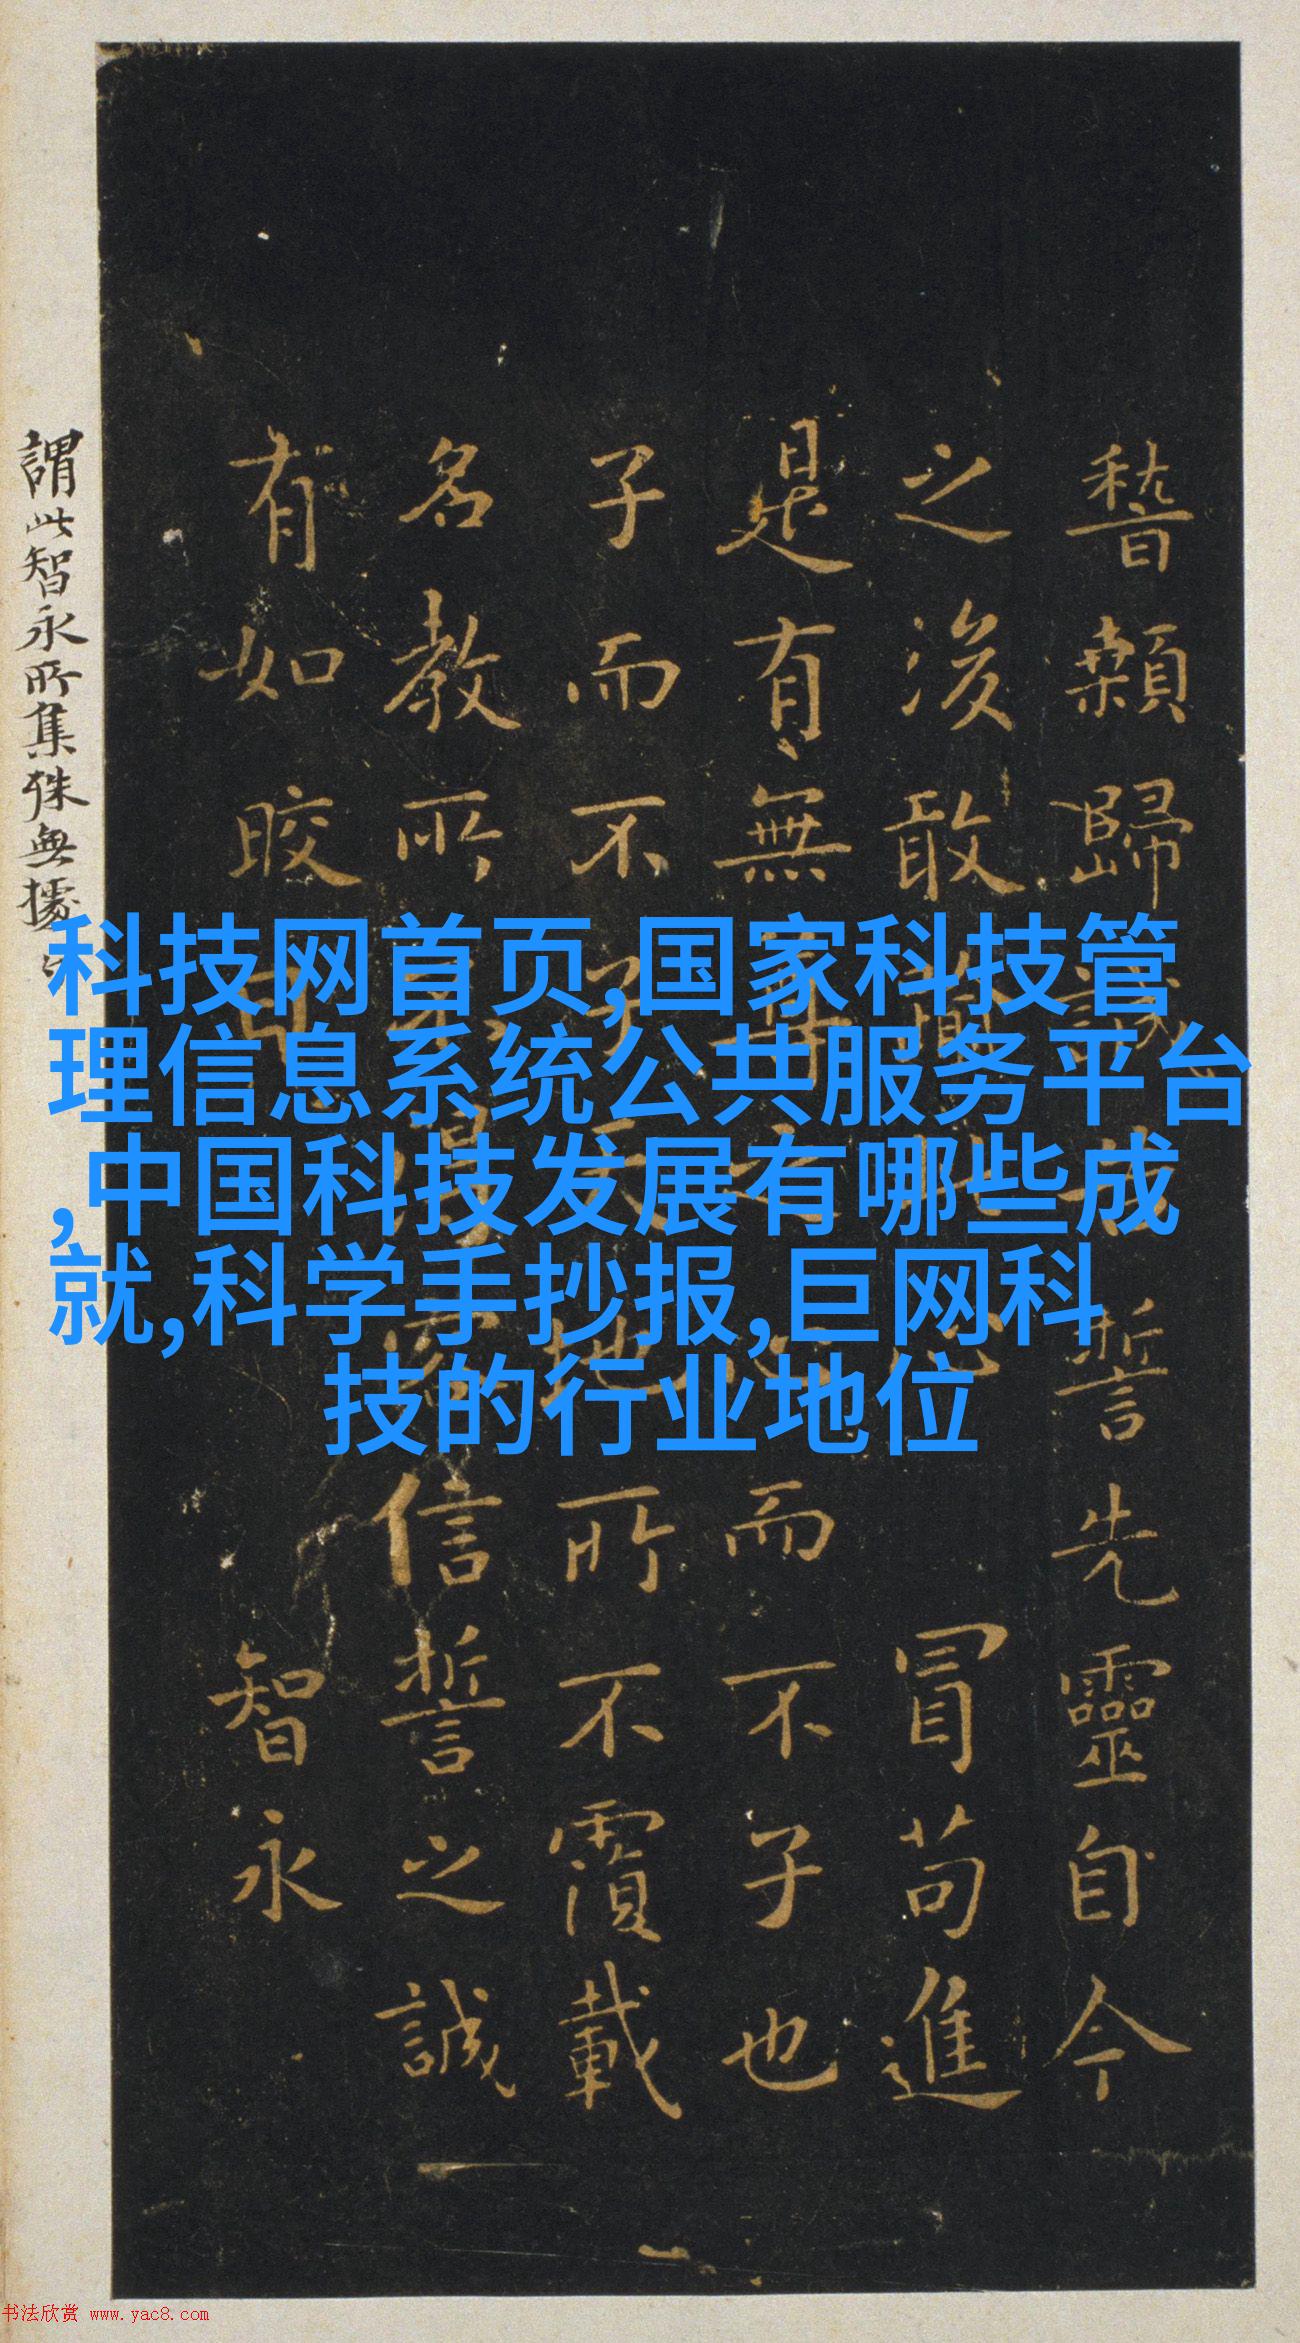 科技网首页,国家科技管
理信息系统公共服务平台
,中国科技发展有哪些成
就,科学手抄报,巨网科
技的行业地位
稽顙歸誠告誓先靈自今
之後敢渝此心冒苟進
是有無尊之心而不子也
子而不子天地所不覆載
名教所不得容信誓之誠
有如皎日 智永
謂此智永所集殊無據
书法欣赏 www.yac8.com